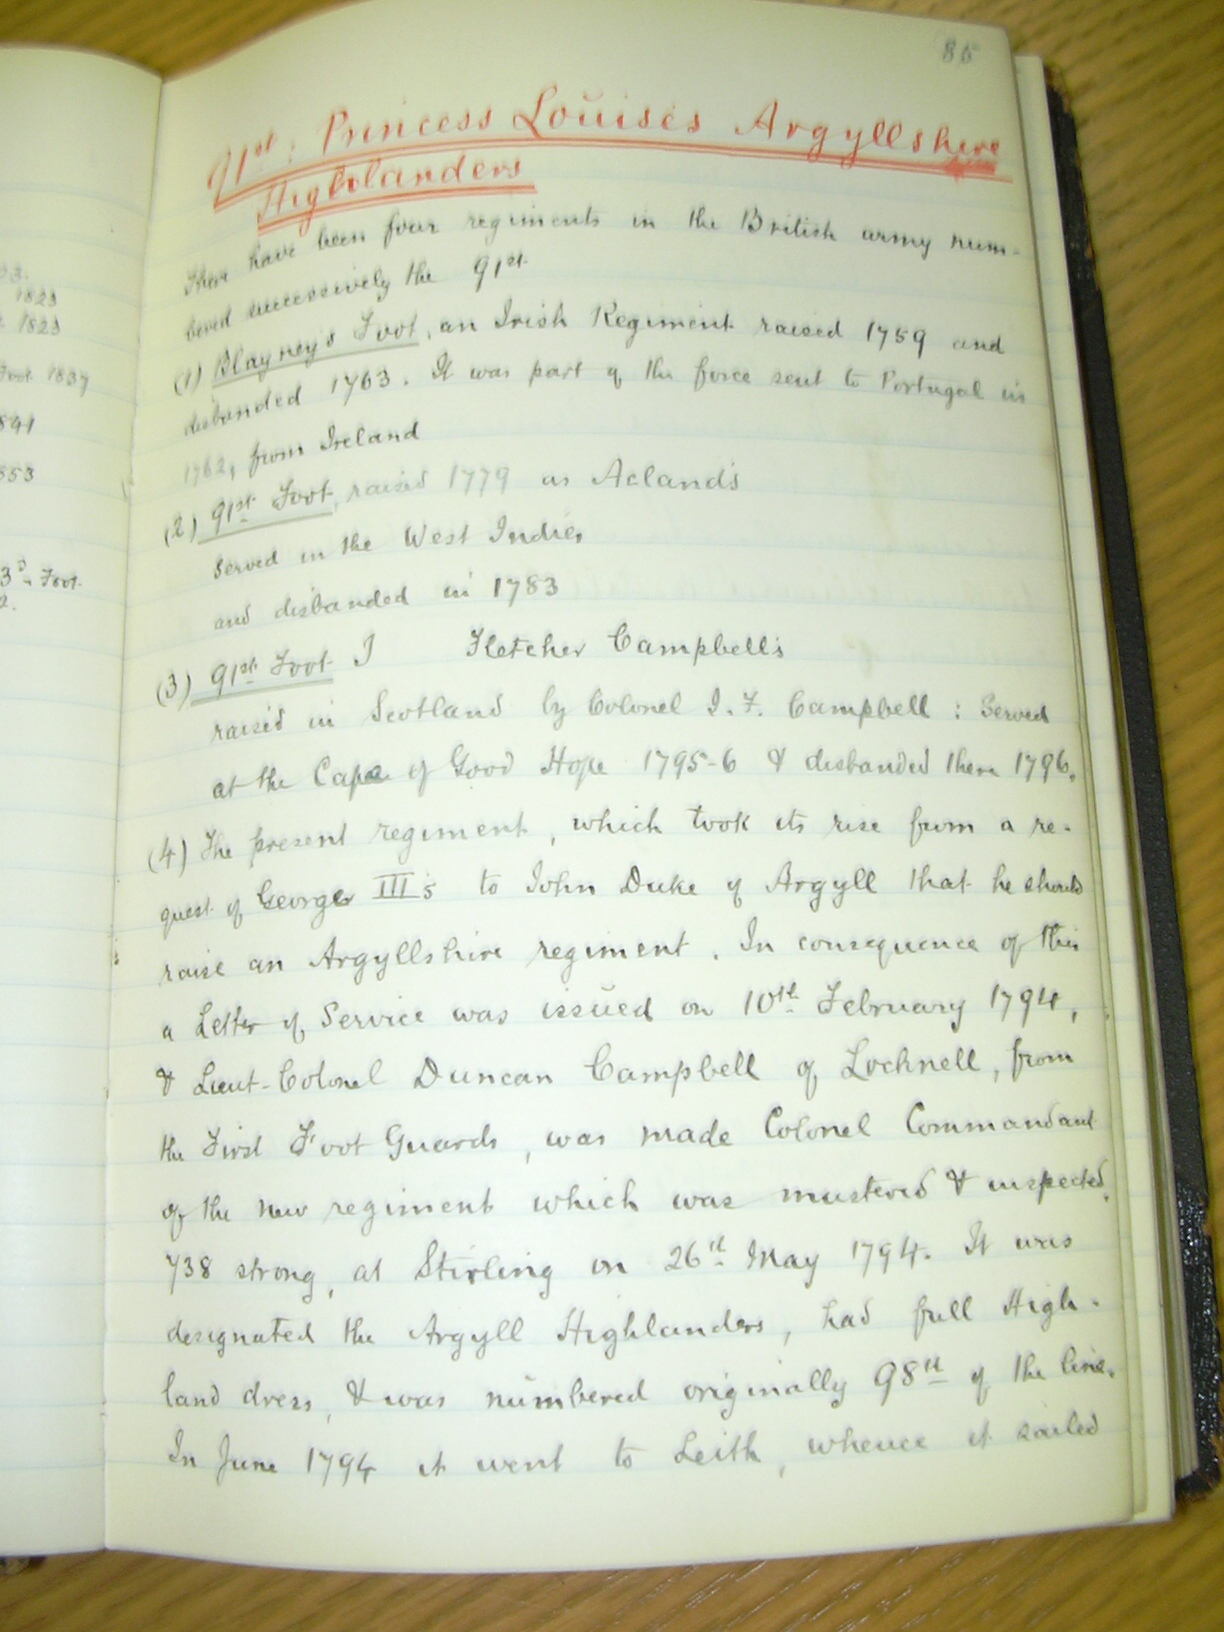 85
91st: Princess Louise's Argyllshire
Highlanders
There have been four regiments in the British army num-
bered successively the 91st.
(1) Blayney's Foot, an Irish Regiment raised 1759 and
disbanded 1763. It was part of the force sent to Portugal in
1762, from Ireland
(2) 91st Foot, raised 1779 as Acland's
served in the West Indies
and disbanded in 1783
(3) 91st Foot I Fletcher Campbell's
raised in Scotland by Colonel I. F. Campbell : Served
at the Cape of Good Hope 1795-6 & disbanded there 1796.
(4) The present regiment, which took its rise from a re-
quest of George III's to John Duke of Argyll that he should
raise an Argyllshire regiment. In consequence of this
a Letter of Service was issued on 10th February 1794,
& Lieut-Colonel Duncan Campbell of Locknell, from
the First Foot Guards, was made Colonel Commandant
of the new regiment which was mustered & inspected,
738 strong, at Stirling on 26th May 1794. It was
designated the Argyll Highlanders, had full High-
land dress, & was numbered originally 98th of the line.
In June 1794 it went to Leith, whence it sailed
1823
1823
Foot 1837
1853
3d Foot